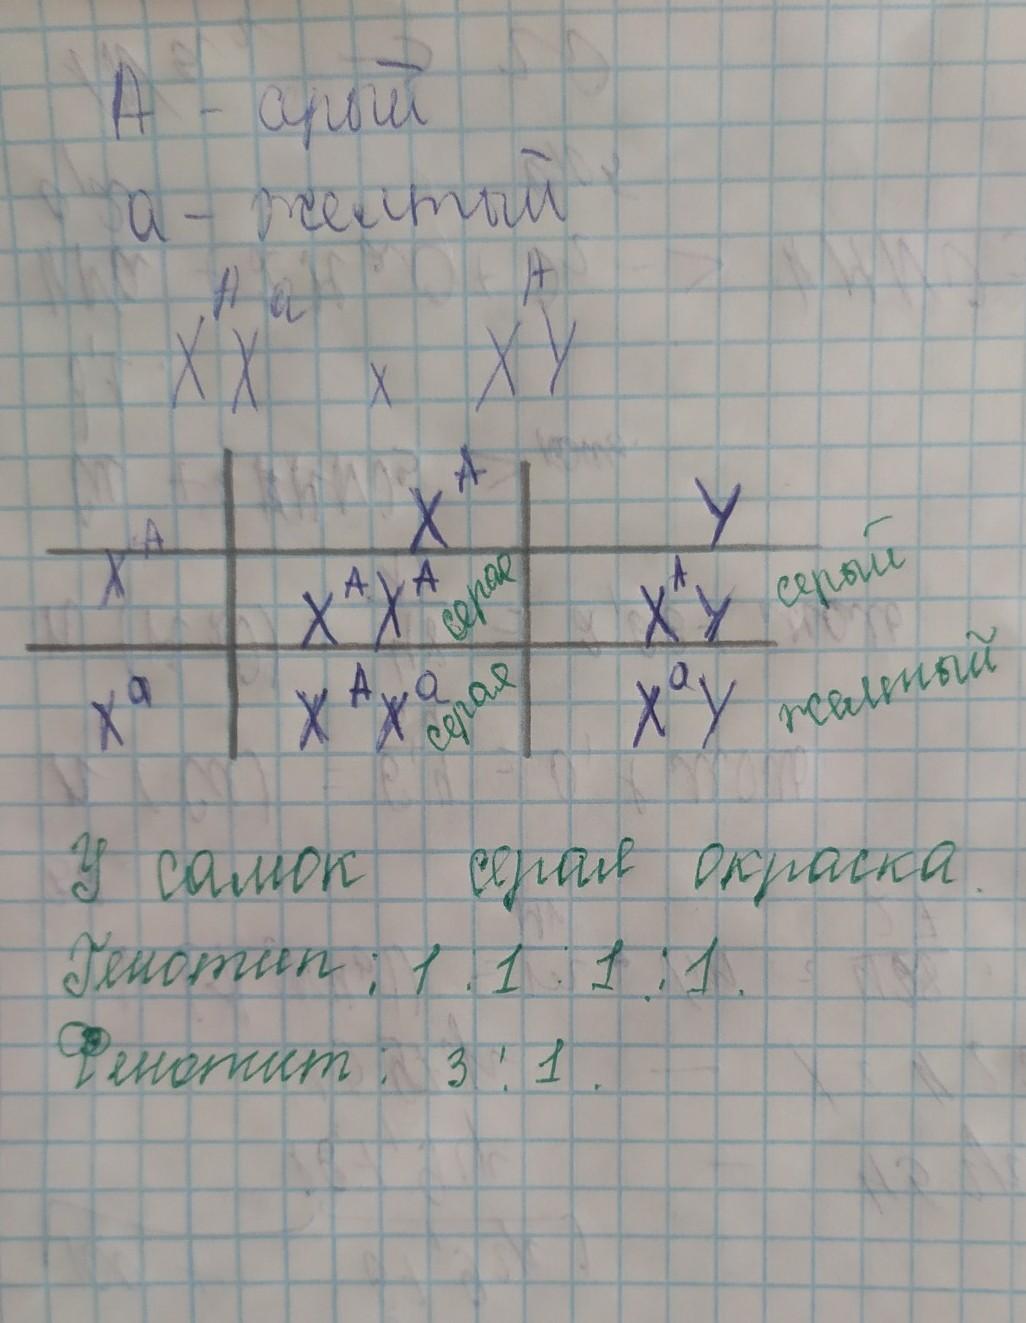 А - серый
а - желтый
X^A X^a x X^A Y
X^A Y
X^A X^A X^A серая X^A Y серый
X^a X^A X^a серая X^a Y желтый
У самок серая окраска.
Генотип: 1 : 1 : 1 : 1.
Фенотип: 3 : 1.